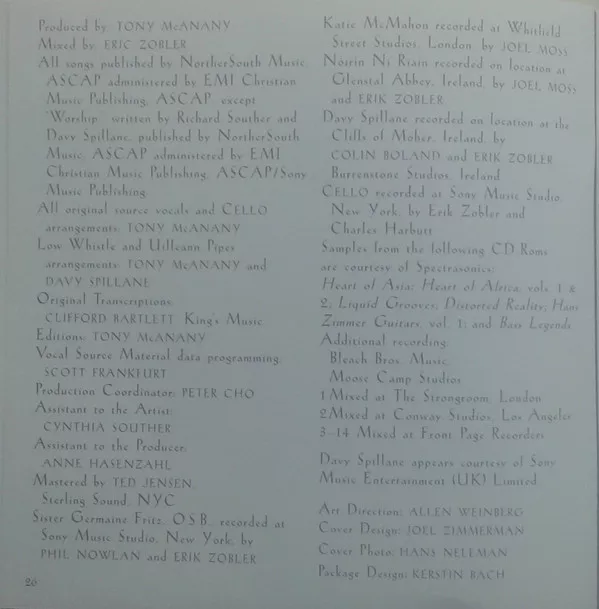 Produced by: TONY McANANY
Mixed by: ERIC ZOBLER
All songs published by NortherSouth Music,
ASCAP administered by EMI Christian
Music Publishing, ASCAP except
"Worship" written by Richard Souther and
Davy Spillane, published by NortherSouth
Music, ASCAP administered by EMI
Christian Music Publishing, ASCAP/Sony
Music Publishing
All original source vocals and CELLO
arrangements: TONY McANANY
Low Whistle and Uilleann Pipes
arrangements: TONY McANANY and
DAVY SPILLANE
Original Transcriptions:
CLIFFORD BARTLETT King's Music
Editions: TONY McANANY
Vocal Source Material data programming:
SCOTT FRANKFURT
Production Coordinator: PETER CHO
Assistant to the Artist:
CYNTHIA SOUTHER
Assistant to the Producer:
ANNE HASENZAHL
Mastered by TED JENSEN,
Sterling Sound, NYC
Sister Germaine Fritz, O.S.B., recorded at
Sony Music Studio, New York, by
PHIL NOWLAN and ERIK ZOBLER
26
Katie McMahon recorded at Whitfield
Street Studios, London, by JOEL MOSS
Nóirín Ní Riain recorded on location at
Glenstal Abbey, Ireland, by JOEL MOSS
and ERIK ZOBLER
Davy Spillane recorded on location at the
Cliffs of Moher, Ireland, by
COLIN BOLAND and ERIK ZOBLER
Burrenstone Studios, Ireland
CELLO recorded at Sony Music Studio,
New York, by Erik Zobler and
Charles Harbutt
Samples from the following CD Roms
are courtesy of Spectrasonics:
Heart of Asia; Heart of Africa, vols. 1 &
2; Liquid Grooves; Distorted Reality; Hans
Zimmer Guitars, vol. 1; and Bass Legends
Additional recording:
Bleach Bros. Music,
Moose Camp Studios
1 Mixed at The Strongroom, London
2 Mixed at Conway Studios, Los Angeles
3–14 Mixed at Front Page Recorders
Davy Spillane appears courtesy of Sony
Music Entertainment (UK) Limited
Art Direction: ALLEN WEINBERG
Cover Design: JOEL ZIMMERMAN
Cover Photo: HANS NELEMAN
Package Design: KERSTIN BACH